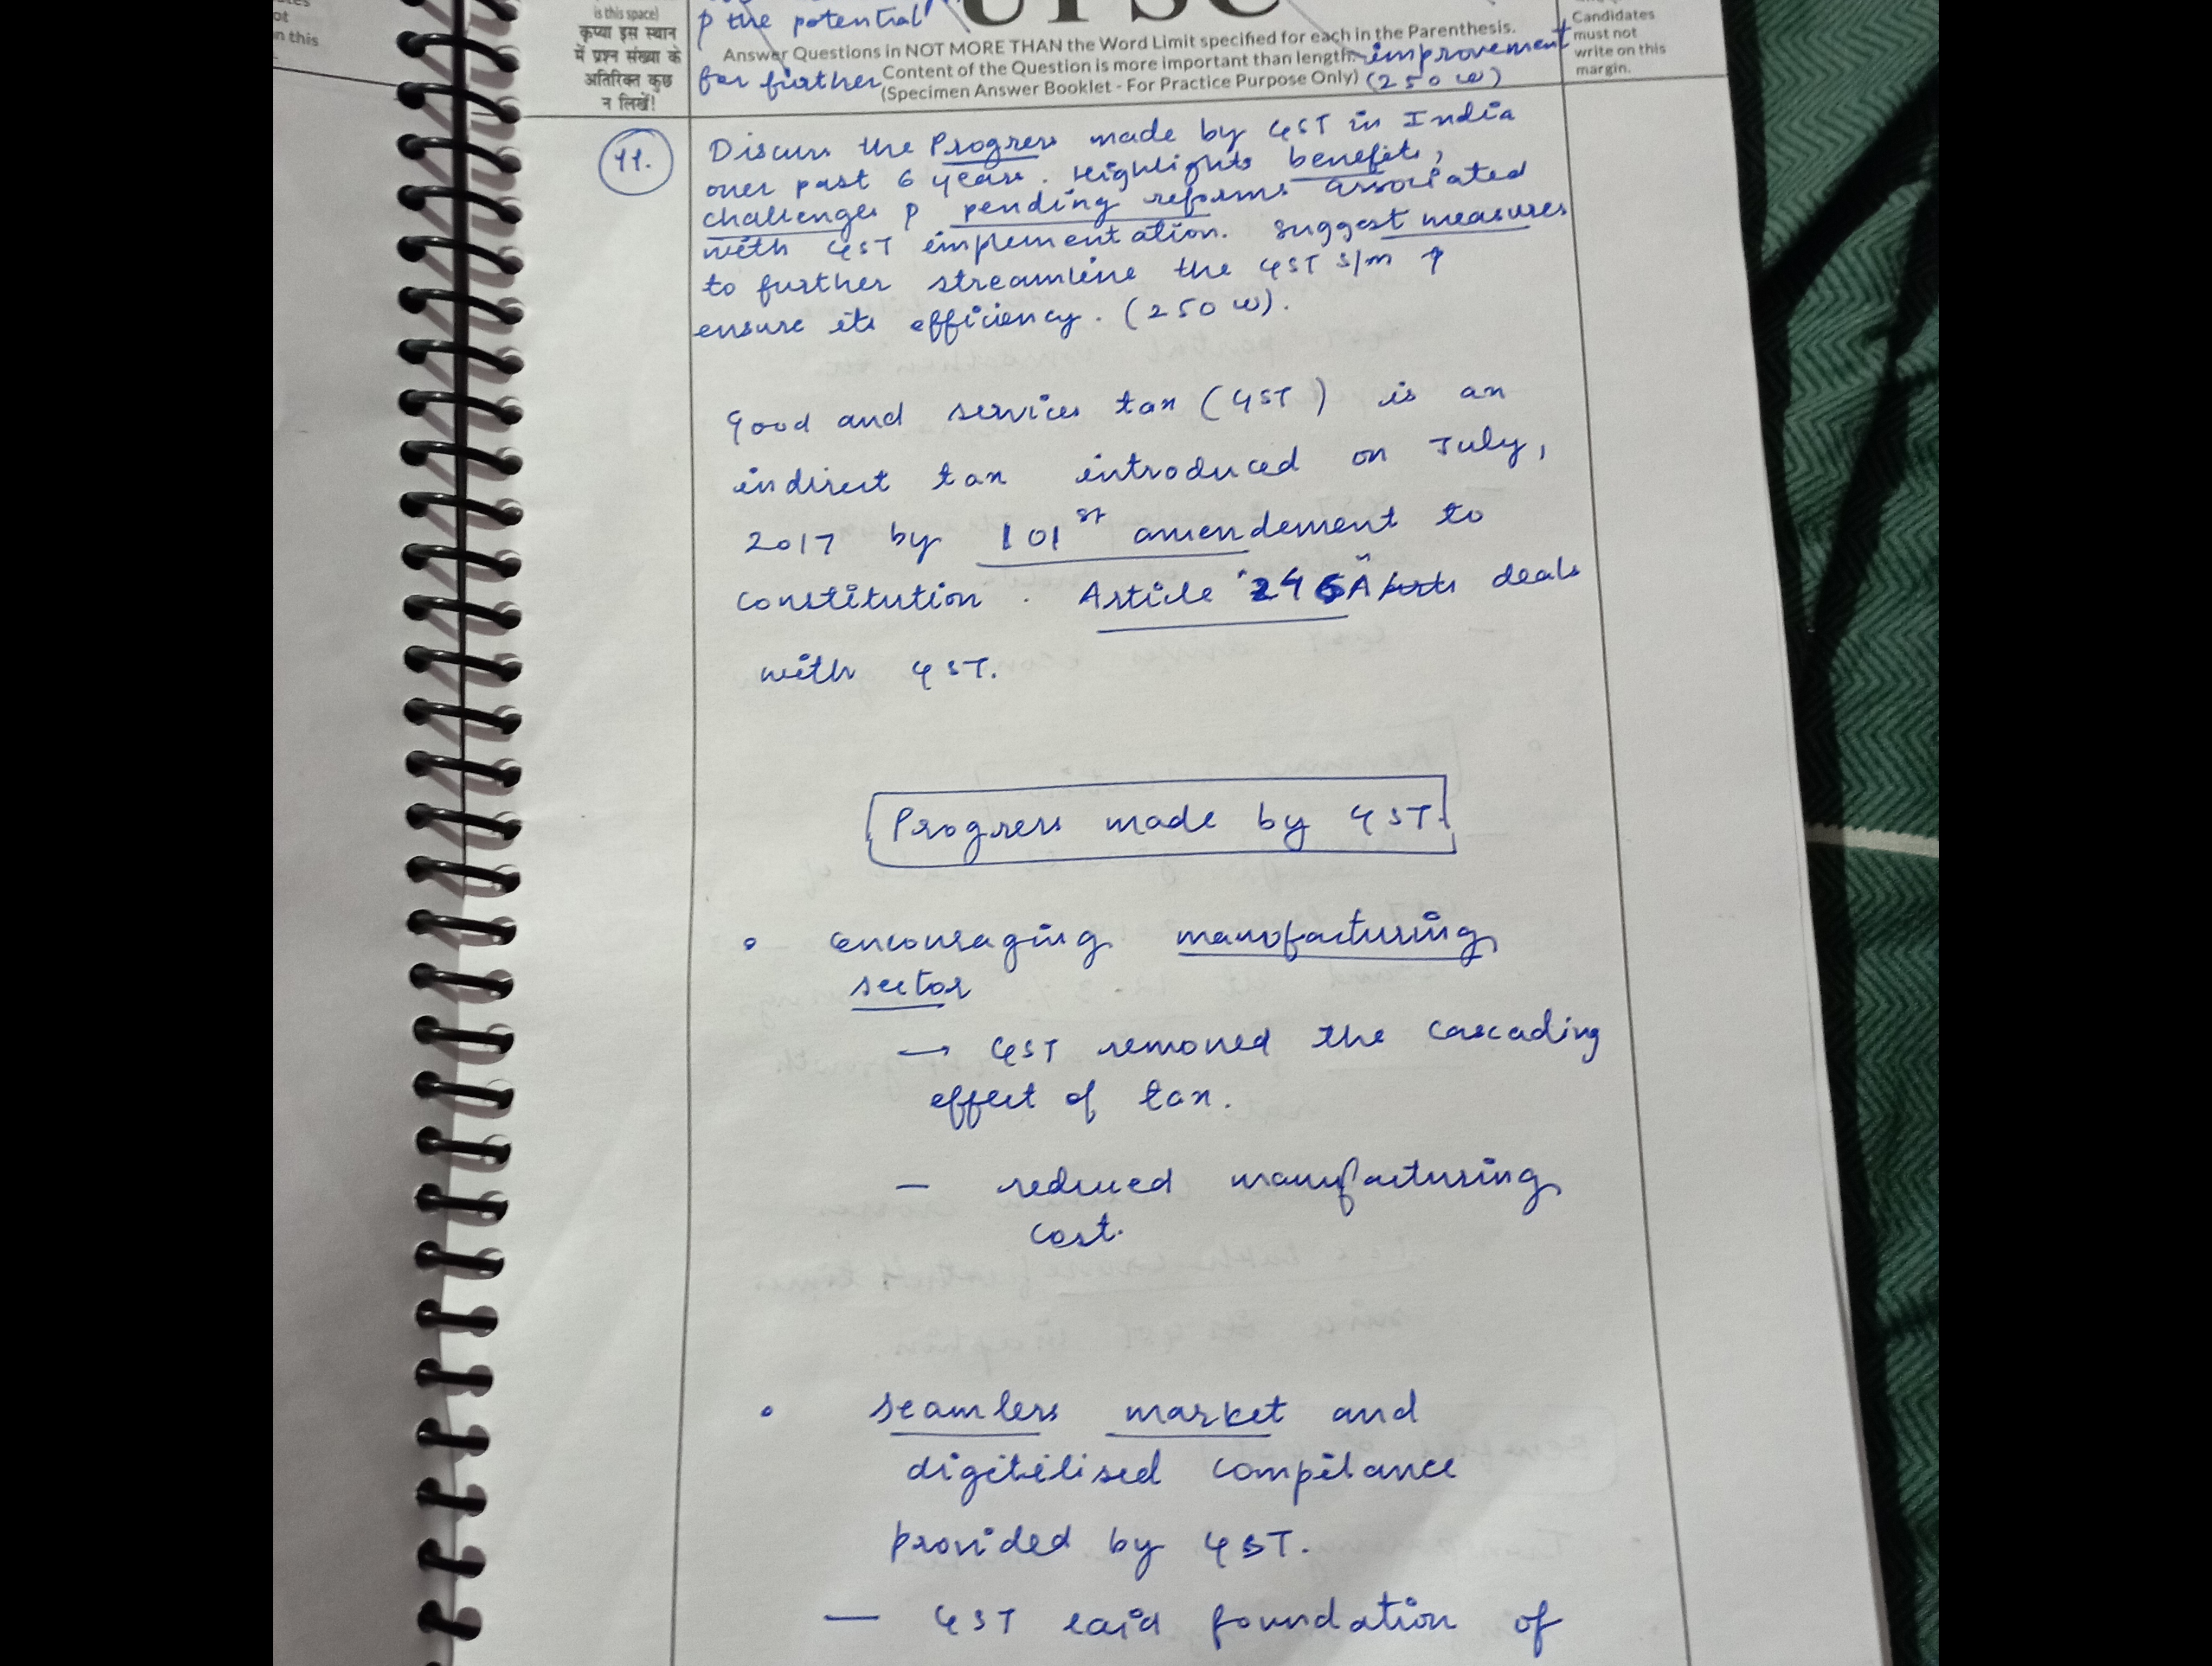 ot
n this
is this space)
कृप्या इस स्थान
में प्रश्न संख्या के
अतिरिक्त कुछ
न लिखें!
UPSC
p the potential
Answer Questions in NOT MORE THAN the Word Limit specified for each in the Parenthesis.
Content of the Question is more important than length. improvement
for further (Specimen Answer Booklet - For Practice Purpose Only) (250 w)
Candidates
must not
write on this
margin.
11.
Discuss the Progress made by GST in India
over past 6 years. Highlights benefits,
challenges & pending reforms associated
with GST implementation. Suggest measures
to further streamline the GST s/m &
ensure its efficiency. (250 w).
Good and services tax (GST) is an
indirect tax introduced on July,
2017 by 101st amendement to
constitution. Article 246A deals
with GST.
Progress made by GST.
encouraging manufacturing
sector
→ GST removed the cascading
effect of tax.
— reduced manufacturing
cost.
seamless market and
digitilised compilance
provided by GST.
— GST laid foundation of